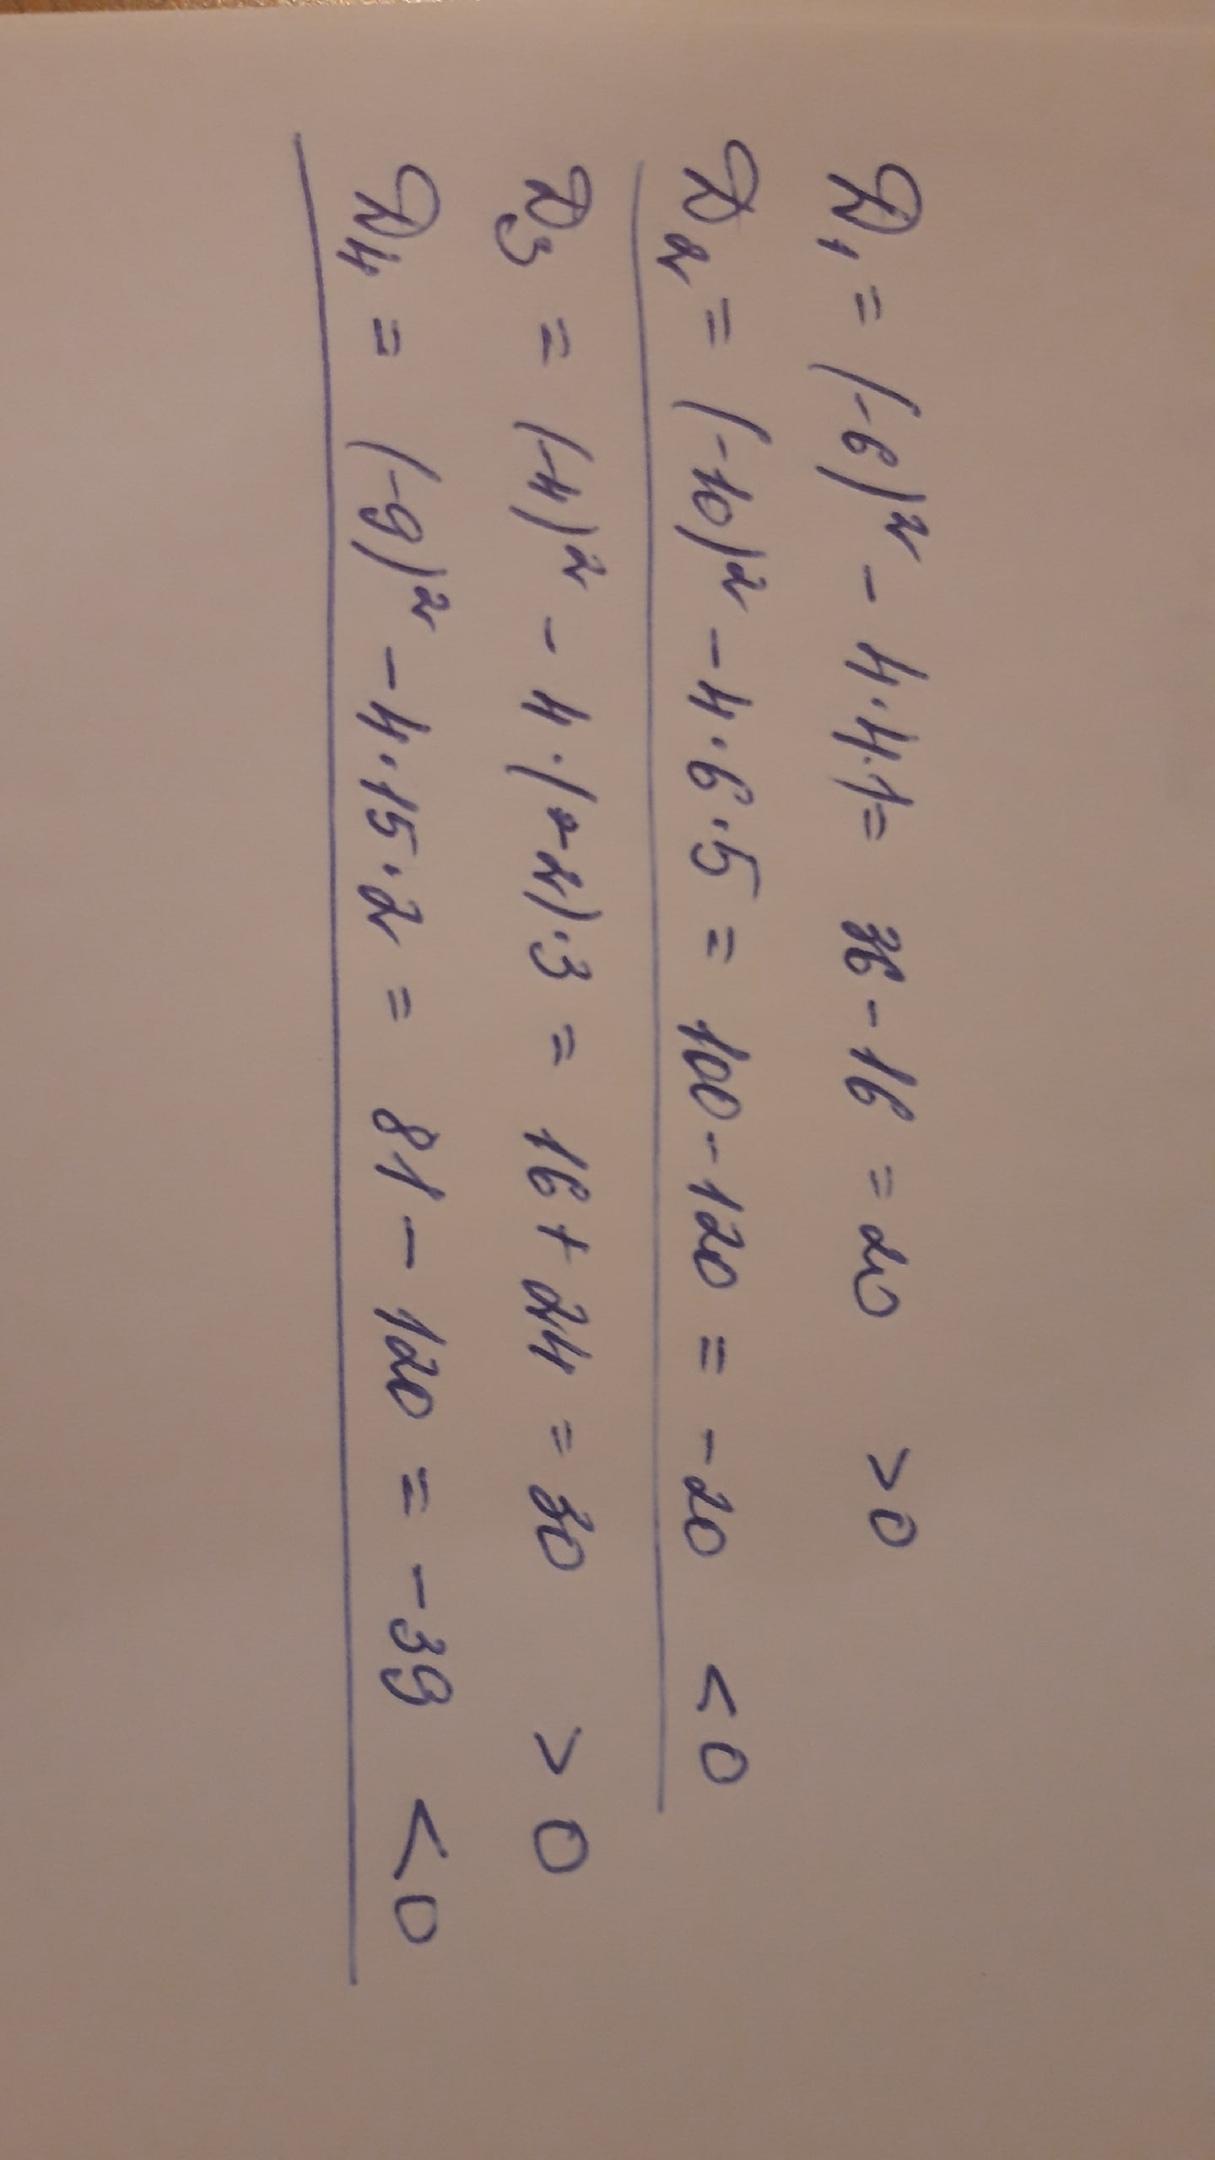 D₁ = (-6)² - 4·4·1 = 36 - 16 = 20 > 0
D₂ = (-10)² - 4·6·5 = 100 - 120 = -20 < 0
D₃ = (-4)² - 4·(-2)·3 = 16 + 24 = 30 > 0
D₄ = (-9)² - 4·15·2 = 81 - 120 = -39 < 0